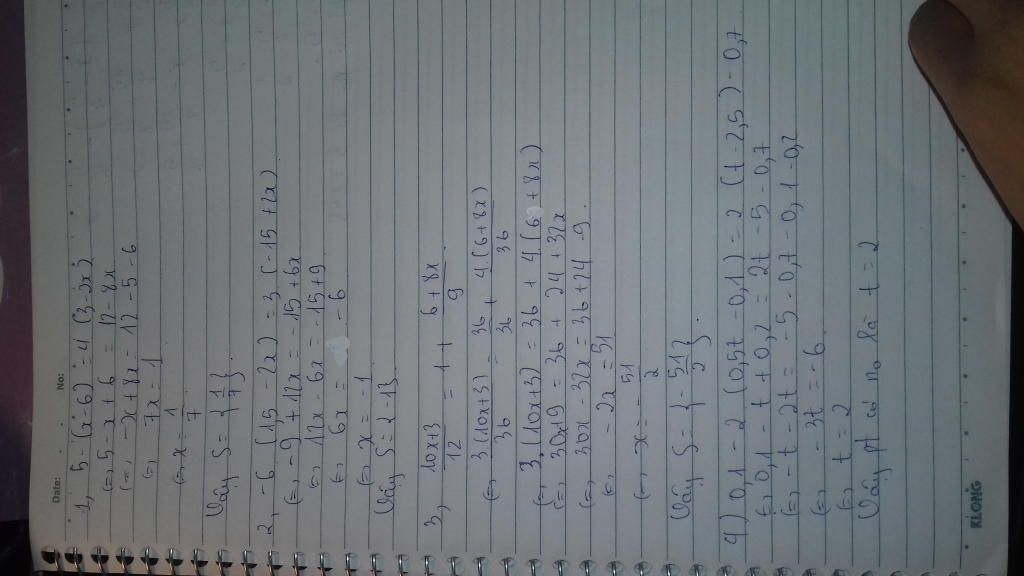 Date: No:
1, 5 - (x - 6) = 4 (3 - 2x)
(=, 5 - x + 6 = 12 - 8x
(=, -x + 8x = 12 - 5 - 6
(=, 7x = 1
(=, x = 1/7
Vậy S = { 1/7 }
2, -6 (1,5 - 2x) = 3 (-1,5 + 2x)
(=, -9 + 12x = -15 + 6x
(=, 12x - 6x = -15 + 9
(=, 6x = -6
(=, x = -1
Vậy S = {-1}
3, 10x+3/12 = 1 + 6+8x/9
(=, 3(10x+3)/36 = 36/36 + 4(6+8x)/36
(=, 3(10x+3) = 36 + 4.(6+8x)
(=, 30x+9 = 36 + 24 + 32x
(=, 30x - 32x = 36 + 24 - 9.
(=, -2x = 51
(=, x = -51/2
Vậy S = { -51/2 }.
4) 0,1 - 2 (0,5t - 0,1) = 2 (t - 2,5) - 0,7
(=, 0,1 - t + 0,2 = 2t - 5 - 0,7
(=, -t - 2t = -5 - 0,7 - 0,1 - 0,2
(=, -3t = -6
(=, t = 2
Vậy pt có no là t = 2
KLONG